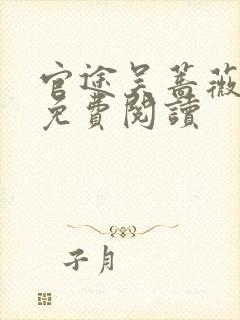 官途吴蔷薇
免費閱讀
子月